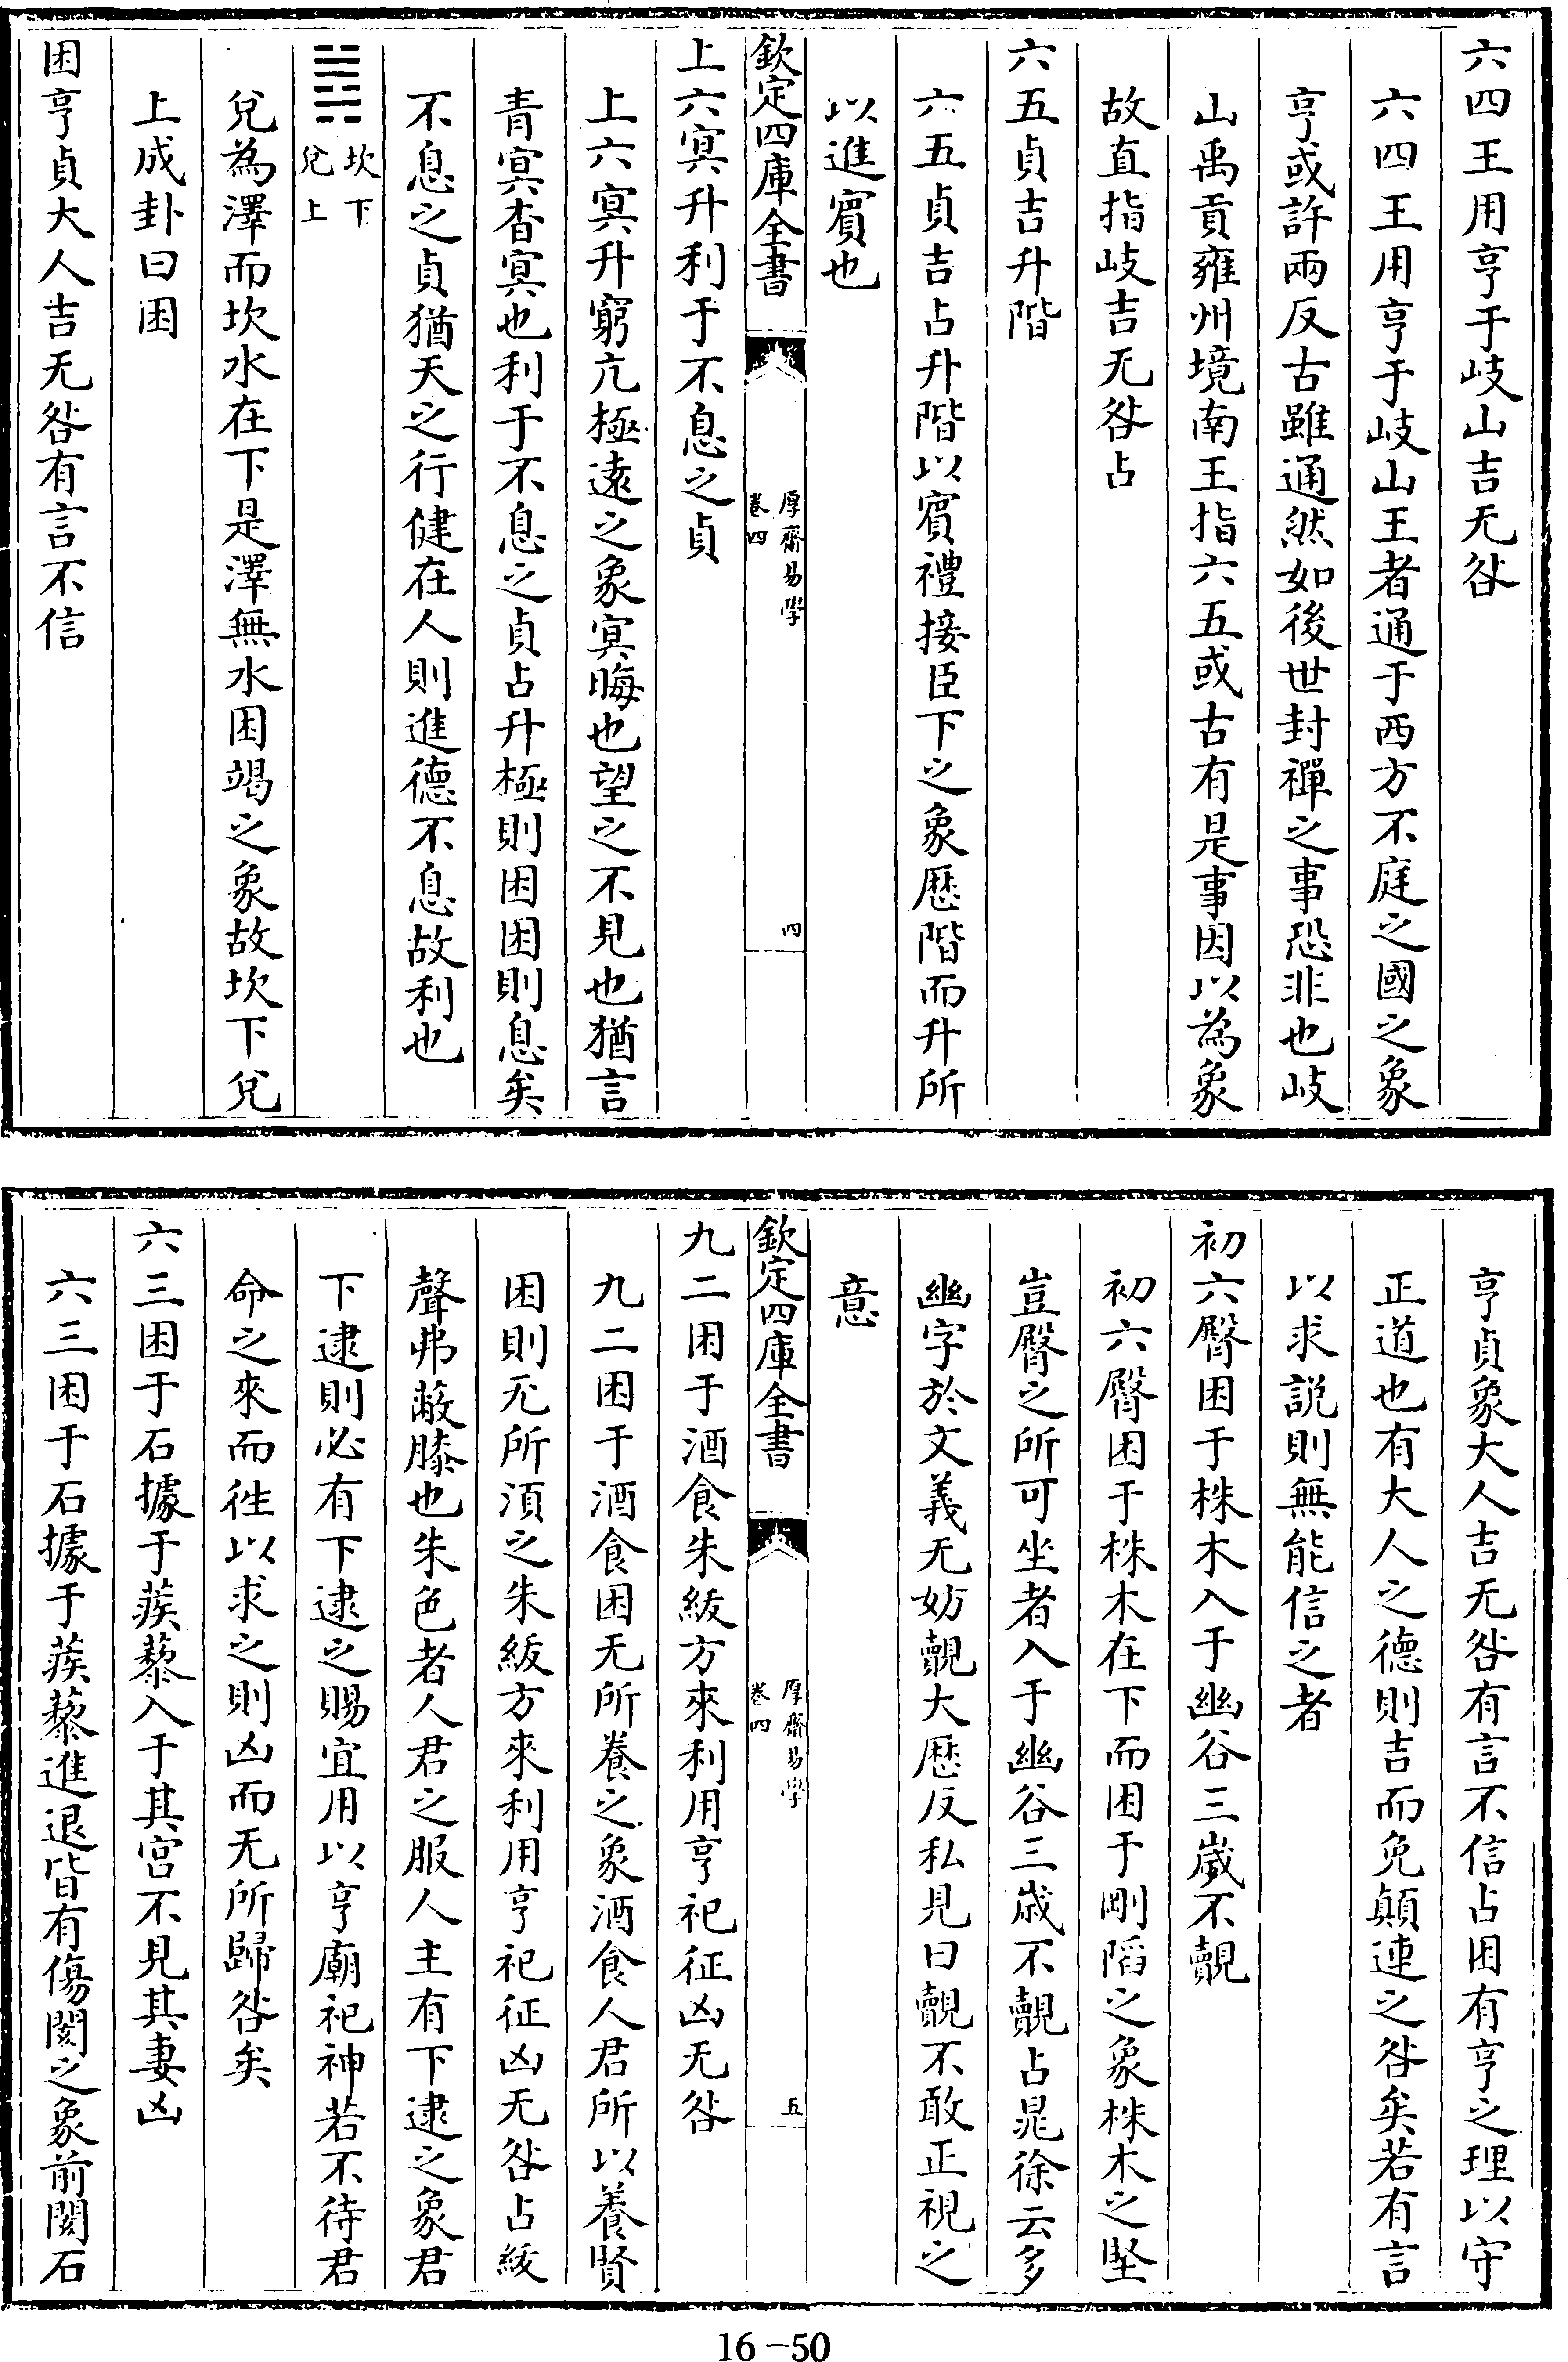 六四王用亨于岐山吉无咎
六四王用亨于岐山王者通于西方不庭之國之象
亨或許兩反古雖通然如後世封禪之事恐非也岐
山禹貢雍州境南王指六五或古有是事因以為象
故直指岐吉无咎占
六五貞吉升階
六五貞吉占升階以賓禮接臣下之象歷階而升所
以進賓也
欽定四庫全書
厚齋易學
卷四
四
上六冥升利于不息之貞
上六冥升窮亢極遠之象冥晦也望之不見也猶言
青冥杳冥也利于不息之貞占升極則困困則息矣
不息之貞猶天之行健在人則進德不息故利也
䷮
坎下
兌上
兌為澤而坎水在下是澤無水困竭之象故坎下兌
上成卦曰困
困亨貞大人吉无咎有言不信
亨貞象大人吉无咎有言不信占困有亨之理以守
正道也有大人之德則吉而免顛連之咎矣若有言
以求說則無能信之者
初六臀困于株木入于幽谷三歲不覿
初六臀困于株木在下而困于剛陷之象株木之堅
豈臀之所可坐者入于幽谷三歲不覿占晁徐云多
幽字於文義无妨覿大歷反私見曰覿不敢正視之
意
欽定四庫全書
厚齋易學
卷四
五
九二困于酒食朱紱方來利用亨祀征凶无咎
九二困于酒食困无所養之象酒食人君所以養賢
困則无所湏之朱紱方來利用亨祀征凶无咎占紱
聲弗蔽膝也朱色者人君之服人主有下逮之象君
下逮則必有下逮之賜宜用以亨廟祀神若不待君
命之來而徃以求之則凶而无所歸咎矣
六三困于石據于蒺藜入于其宫不見其妻凶
六三困于石據于蒺藜進退皆有傷閡之象前閡石
16-50